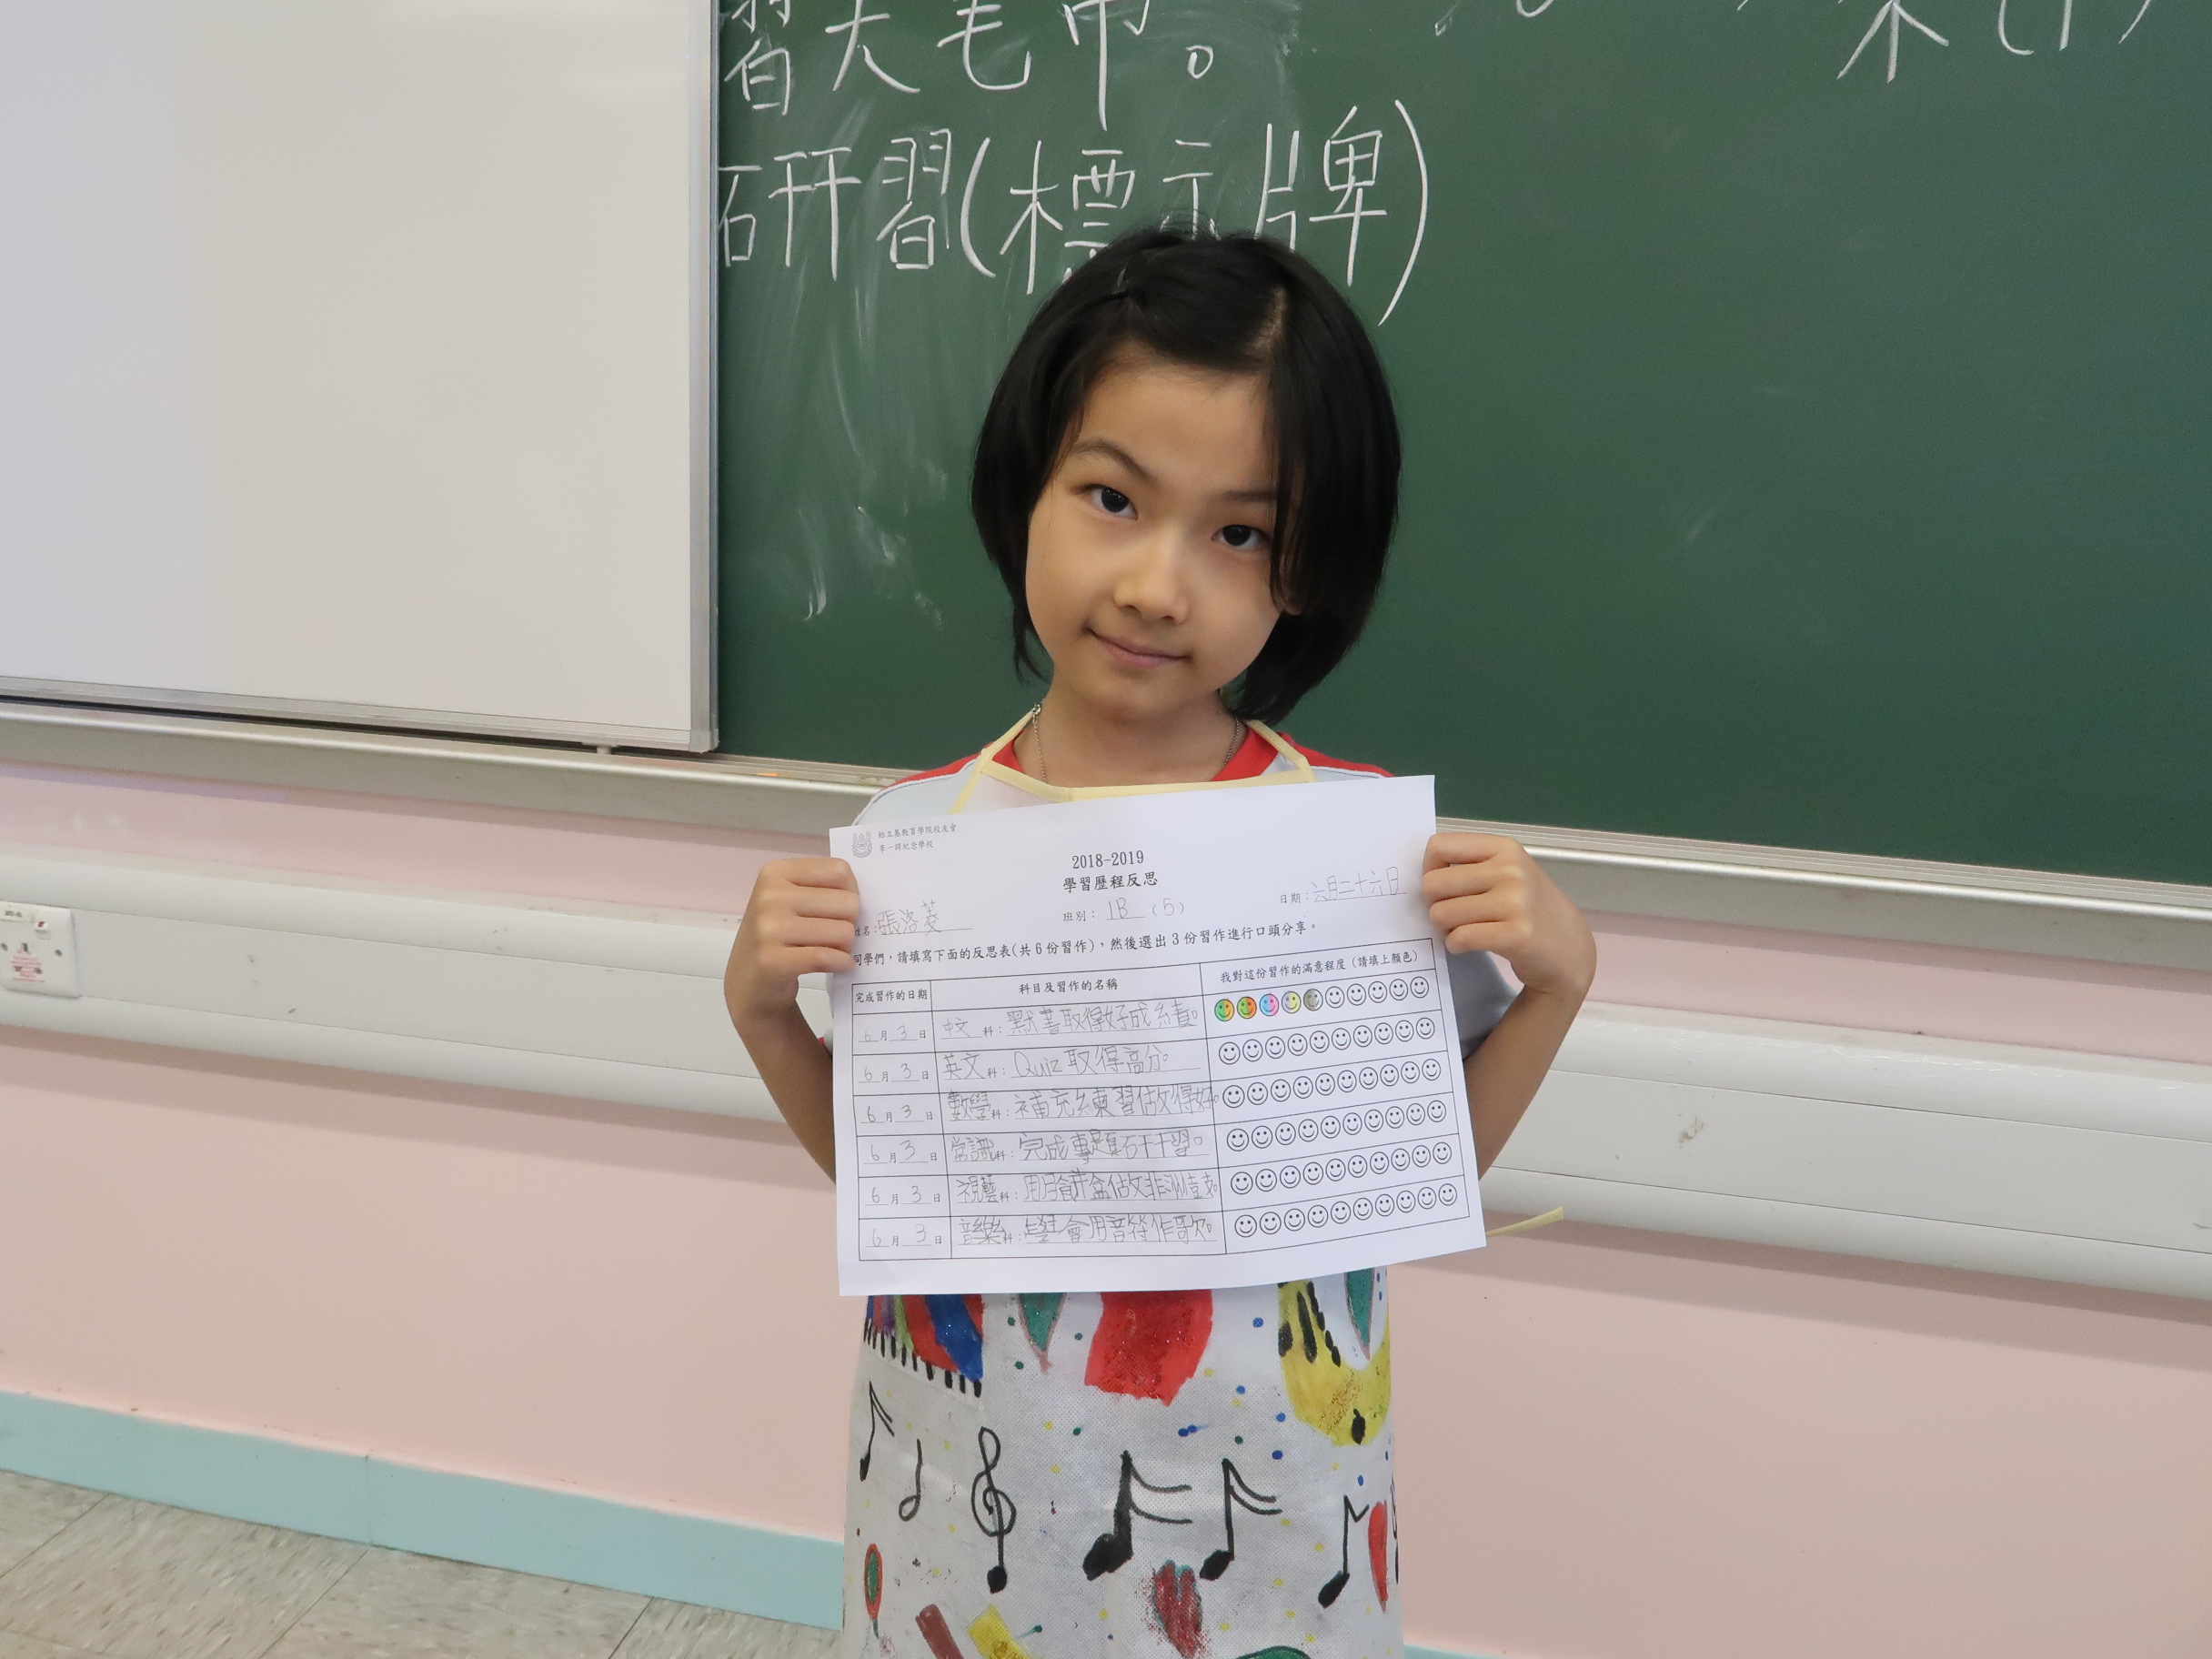 習大毛巾。
研習(標示牌)
柏立基教育學院校友會
李一諤紀念學校
2018-2019
學習歷程反思
姓名：張洛菱 班別： 1B (5) 日期：六月二十六日
同學們，請填寫下面的反思表(共6份習作)，然後選出3份習作進行口頭分享。
完成習作的日期 科目及習作的名稱 我對這份習作的滿意程度（請填上顏色）
6月3日 中文科：默書取得好成績。
6月3日 英文科：Quiz取得高分。
6月3日 數學科：補充練習做得好。
6月3日 常識科：完成專題研習。
6月3日 視藝科：用月餅盒做非洲鼓。
6月3日 音樂科：學會用音符作歌。